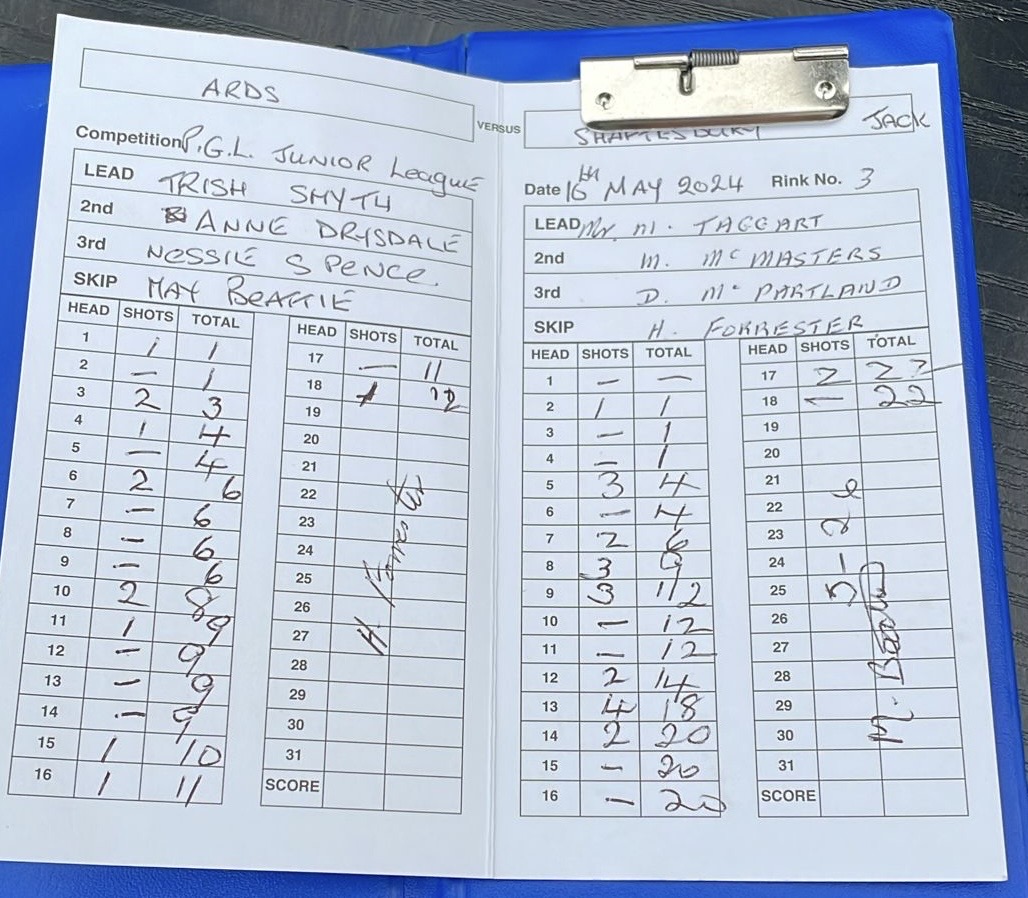 ARDS
Competition P.G.L. JUNIOR LEAGUE
LEAD TRISH SMYTH
2nd ANNE DRYSDALE
3rd NESSIE SPENCE
SKIP MAY BEATTIE
HEAD SHOTS TOTAL
1 1 1
2 — 1
3 2 3
4 1 4
5 — 4
6 2 6
7 — 6
8 — 6
9 — 6
10 2 8
11 1 9
12 — 9
13 — 9
14 — 9
15 1 10
16 1 11
HEAD SHOTS TOTAL
17 — 11
18 1 12
19
20
21
22
23
24
25
26
27
28
29
30
31
SCORE
H. Forrester
VERSUS
SHAFTESBURY JACK
Date 16th MAY 2024 Rink No. 3
LEAD Mr M. TAGGART
2nd M. McMASTERS
3rd D. McPARTLAND
SKIP H. FORRESTER
HEAD SHOTS TOTAL
1 — —
2 1 1
3 — 1
4 — 1
5 3 4
6 — 4
7 2 6
8 3 9
9 3 12
10 — 12
11 — 12
12 2 14
13 4 18
14 2 20
15 — 20
16 — 20
HEAD SHOTS TOTAL
17 2 22
18 — 22
19
20
21
22
23
24
25
26
27
28
29
30
31
SCORE
M. Beattie